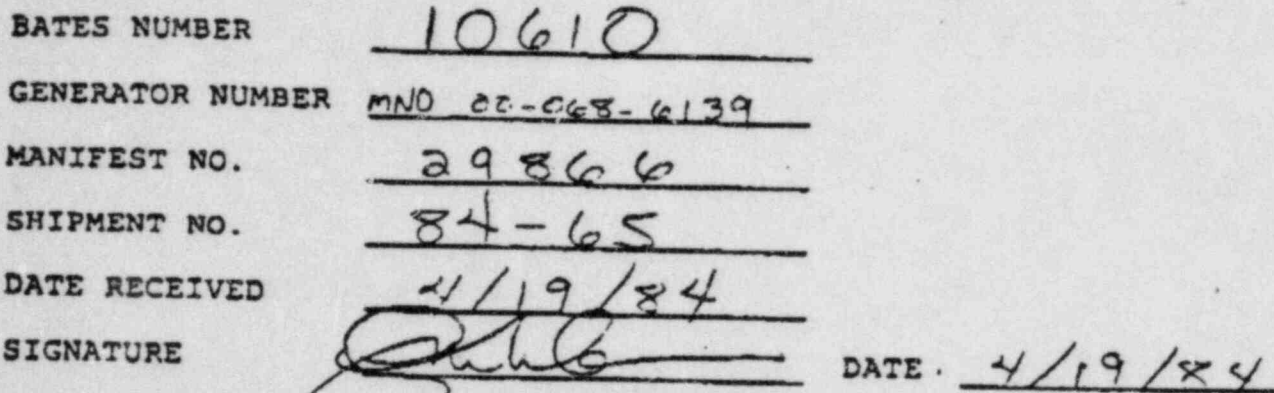 BATES NUMBER 10610
GENERATOR NUMBER MND 00-068-6139
MANIFEST NO. 29866
SHIPMENT NO. 84-65
DATE RECEIVED 4/19/84
SIGNATURE DATE. 4/19/84